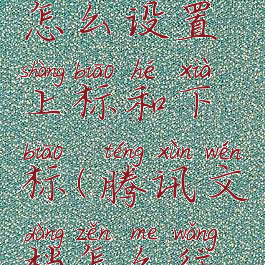 怎么设置
shàng biāo hé xià
上标和下
biāo téng xùn wén
标(腾讯文
dàng zěn me wǎng
档怎么往